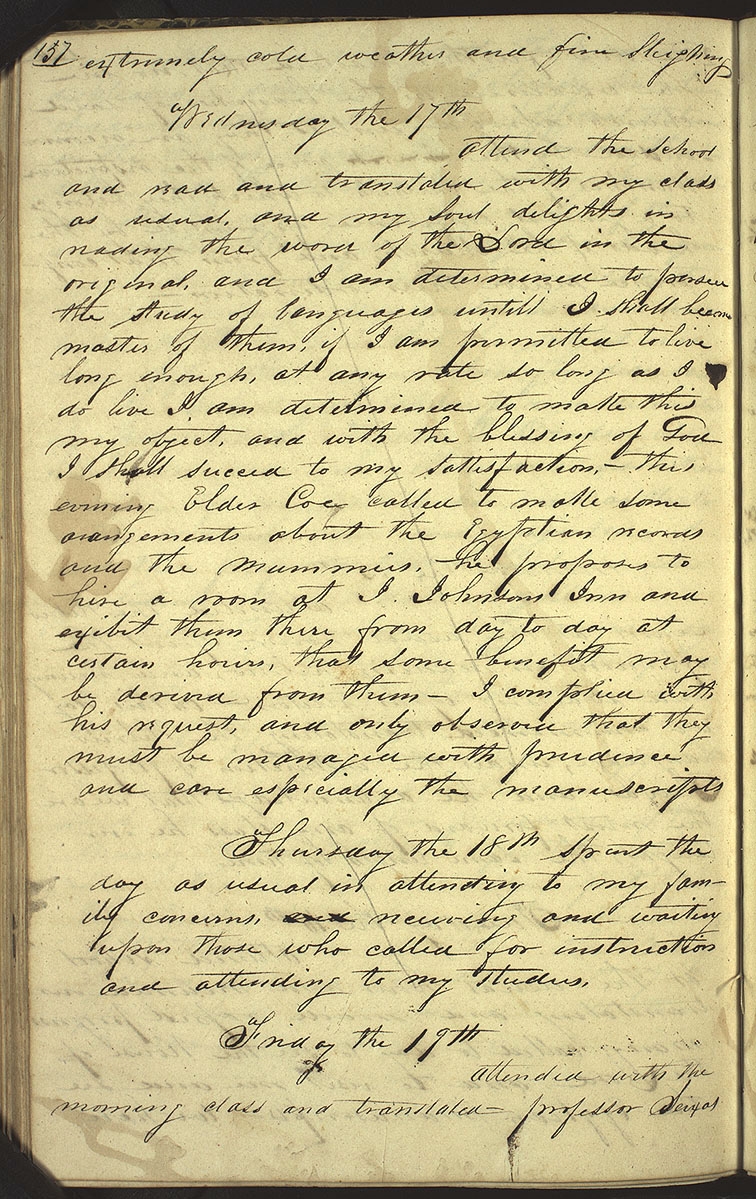 157 extremely cold weather and fine Sleighing
Wednesday the 17th
attend the school
and read and translated with my class
as usual, and my soul delights in
reading the word of the Lord in the
original, and I am determined to persue
the study of languages untill I shall become
master of them, if I am permitted to live
long enough, at any rate so long as I
do live I am determined to make this
my object, and with the blessing of God
I shall succed to my satisfaction,— this
evening Elder Coe called to make some
arangements about the Egyptian records
and the mummies, he proposes to
hire a room at J. Johnsons Inn and
exibit them there from day to day at
certain hours, that some benefit may
be derived from them— I complied with
his request, and only observed that they
must be managed with prudence
and care especially the manuscripts
Thursday the 18th spent the
day as usual in attending to my fam-
ily concerns, and receiving and waiting
upon those who called for instruction
and attending to my studies,
Friday the 19th
attended with the
morning class and translated— professor Seixas